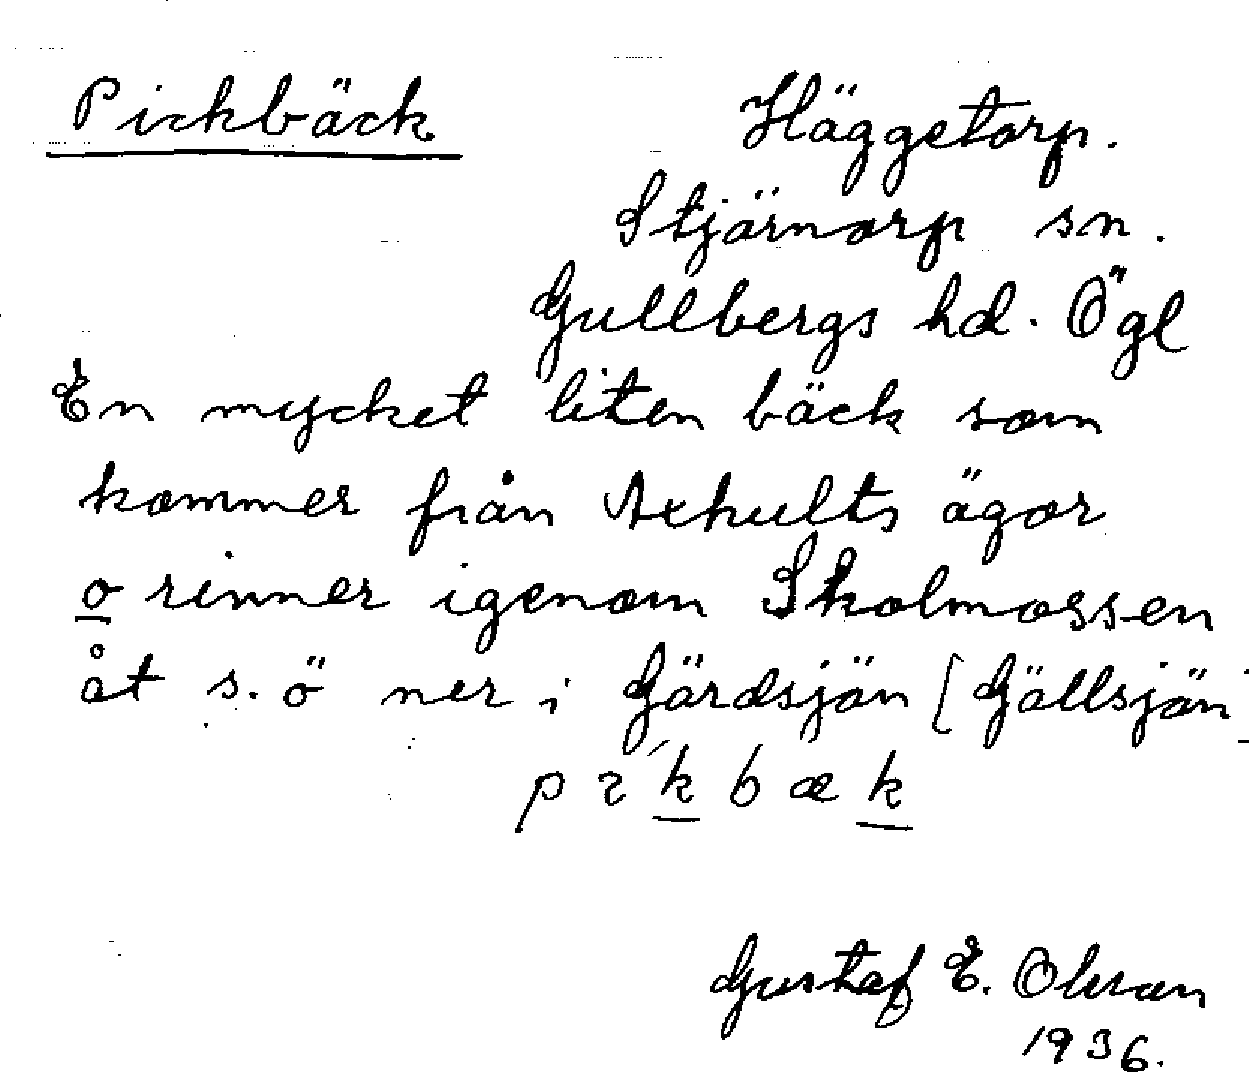 Pickbäck
Häggetorp.
Stjärnorp sn.
Gullbergs hd. Ögl
En mycket liten bäck som
kommer från Axhults ägor
o rinner igenom Skolmossen
åt s. ö ner i Gärdsjön [Gällsjön]
pɩkbæk
Gustaf E. Olsson
1936.